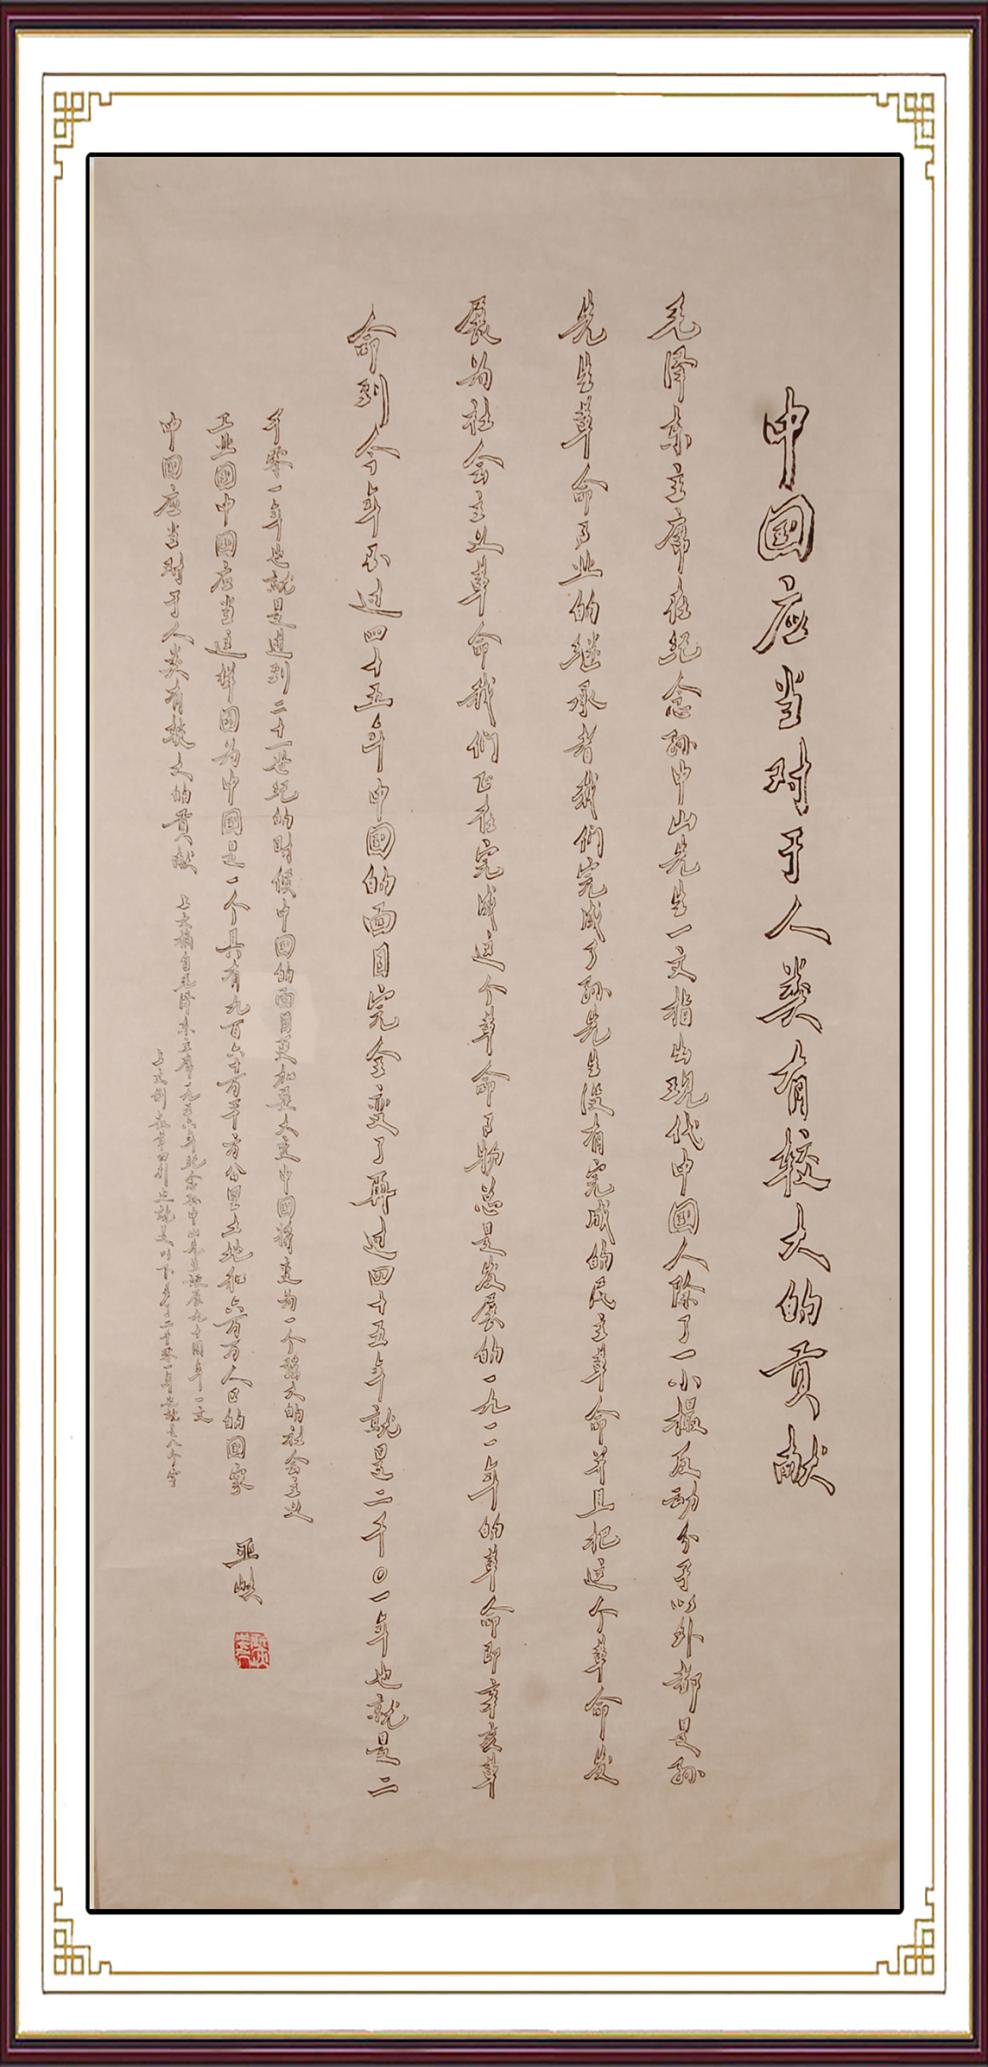 中國应当对于人类有较大的贡献
毛泽东主席在纪念孙中山先生一文指出现代中國人除了一小撮反动分子以外都是孙
先生革命事业的继承者我们完成了孙先生没有完成的民主革命并且把这个革命发
展为社会主义革命我们正在完成这个革命事物总是发展的一九一一年的革命即辛亥革
命到今年不过四十五年中國的面目完全变了再过四十五年就是二千〇一年也就是二
千零一年也就是进到二十一世纪的时候中国的面目更加要大变中國将变为一个强大的社会主义
工业國中國应当这样因为中國是一个具有九百六十万平方公里土地和六万万人口的國家
中國应当对于人类有较大的贡献
上文摘自毛泽东主席一九五六年纪念孙中山年九十周年一文